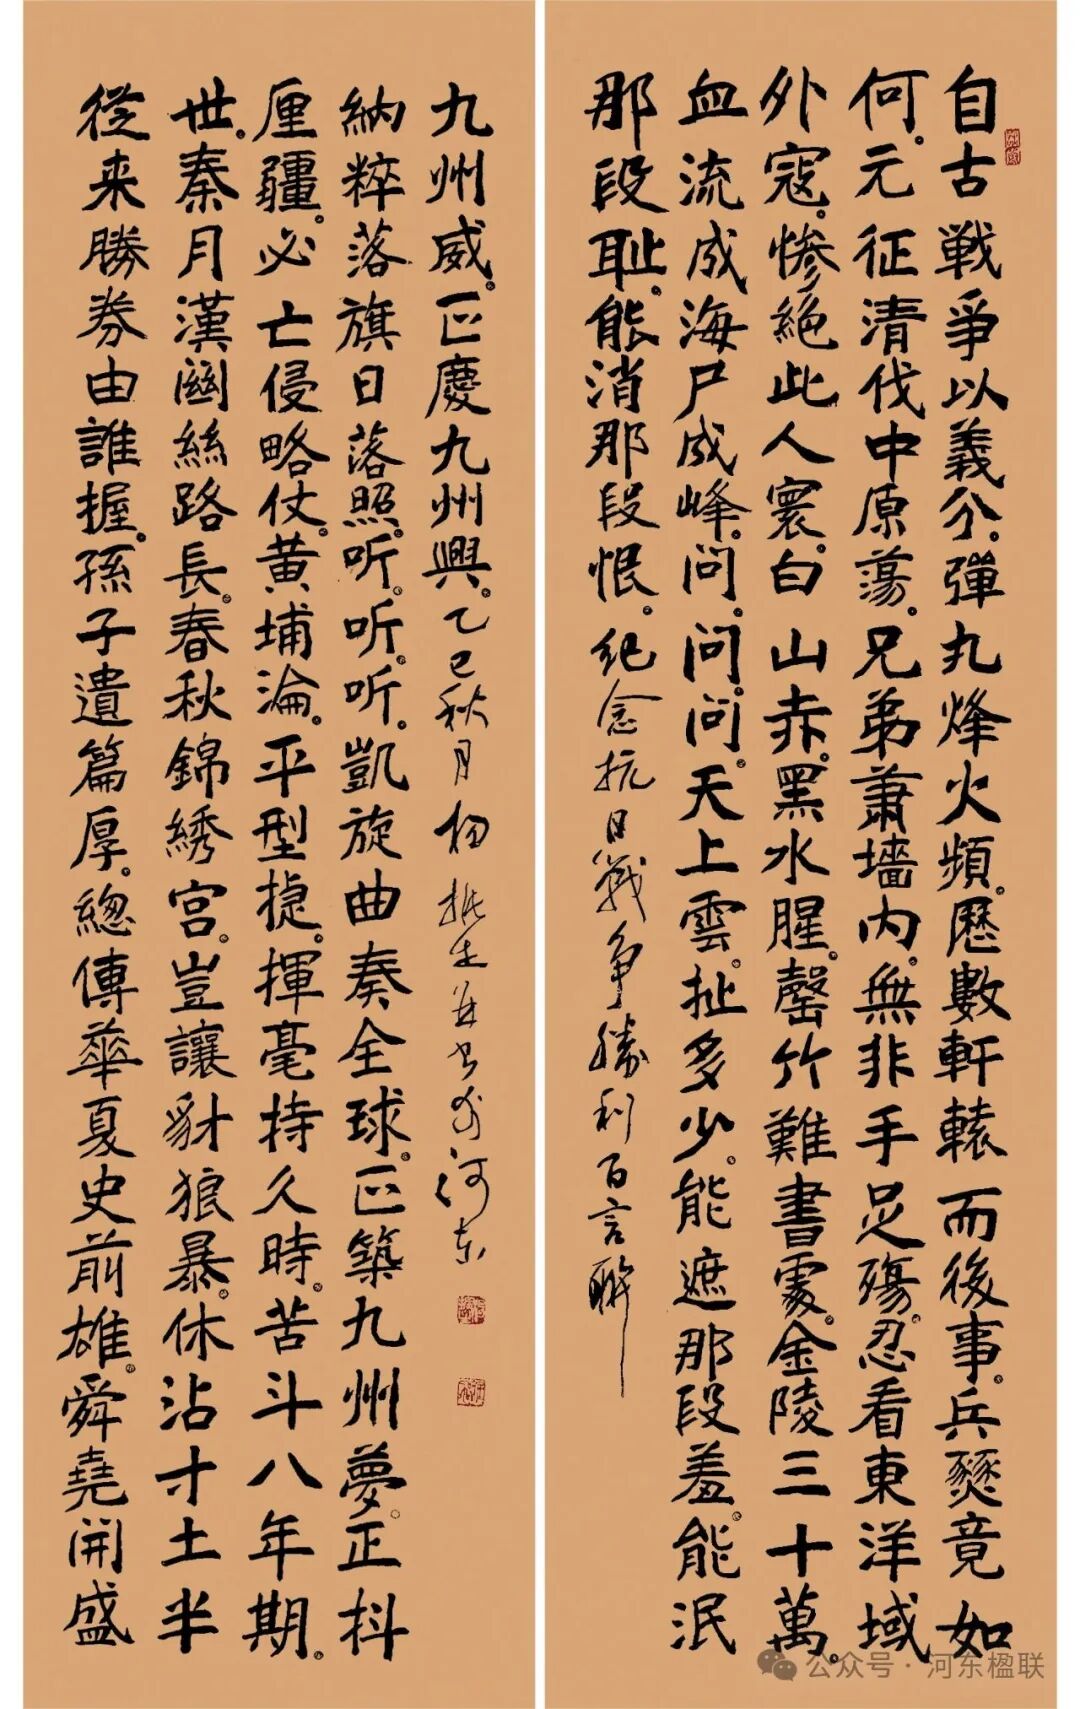 自古戰爭以義分。彈丸烽火頻。歷數軒轅而後事。兵燹竟如
何。元征清伐中原蕩。兄弟蕭墻内。無非手足殤。忍看東洋域
外寇。慘絕此人寰。白山赤。黑水腥。罄竹難書處。金陵三十萬。
血流成海尸成峰。問。問。問。天上雲。扯多少。能遮那段羞。能泯
那段耻。能消那段恨。紀念抗日戰争勝利百言聯
從来勝券由誰握。孫子遺篇厚。總傳華夏史前雄。舜堯開盛
世。秦月漢關絲路長。春秋錦綉宫。豈讓豺狼暴。休沾寸土半
厘疆。必亡侵略仗。黄埔淪。平型捷。揮毫持久時。苦斗八年期。
納粹落旗日落照。听。听。听。凱旋曲奏全球。正築九州夢。正抖
九州威。正慶九州興。乙巳秋月楊振生并书於河东
公众号·河东楹联